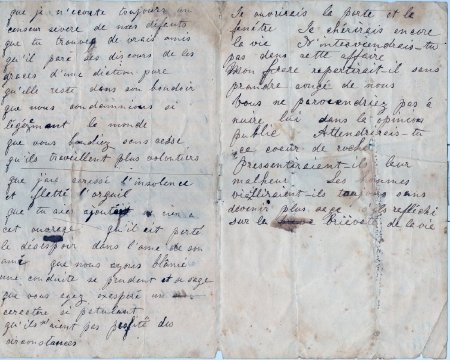 que j'ai n'écoute toujours un
censeur sévère de nos défauts
que tu trouves de vrais amis
qu'il pare ses discours de les
graces d'une diction pure
qu'elle reste dans son boudoir
que nous condamnions si
légèrement le monde
que vous boudiez sans cesse
qu'ils travaillent plus volontiers
que j'aie l'insolence
et flétri l'orgueil
que tu aies ajouté
cet outrage qu'il ait porté
le désespoir dans l'ame de son
ami que nous ayons blamé
une conduite se prudent et si sage
que vous ayez exaspéré un
caractère si pétulant
qu'ils n'aient pas profité des
circonstances
Je ouvrirais la porte et la
fenêtre Je chérirais encore
la vie N'interviendrais-tu
pas dans cette affaire
Mon frère repartirait-il sans
prendre congé de nous
Vous ne parviendriez pas à
nuire lui dans la opinion
public Attendrirais-tu
ce coeur de roche
Pressentiraient-il leur
malheur Les hommes
vieilliraient-ils toujours sans
devenir plus sage réfléchi
sur la brièveté de la vie